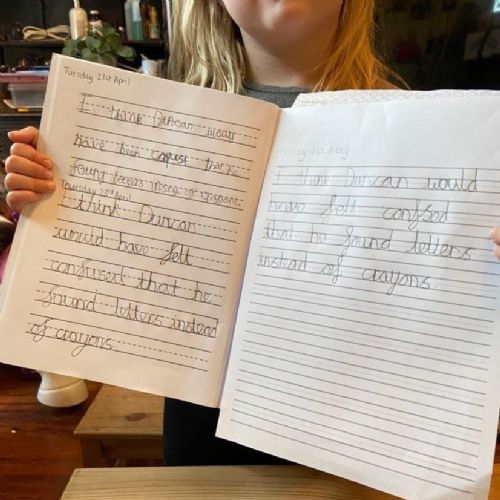 Tuesday 21st April
I think Duncan
have been that he
of crayons
Thursday 23rd April
I think Duncan
would have felt
confused that he
found letters instead
of crayons.
Friday 1st May
I think Duncan would
have felt confsed
that he found letters
instead of crayons.